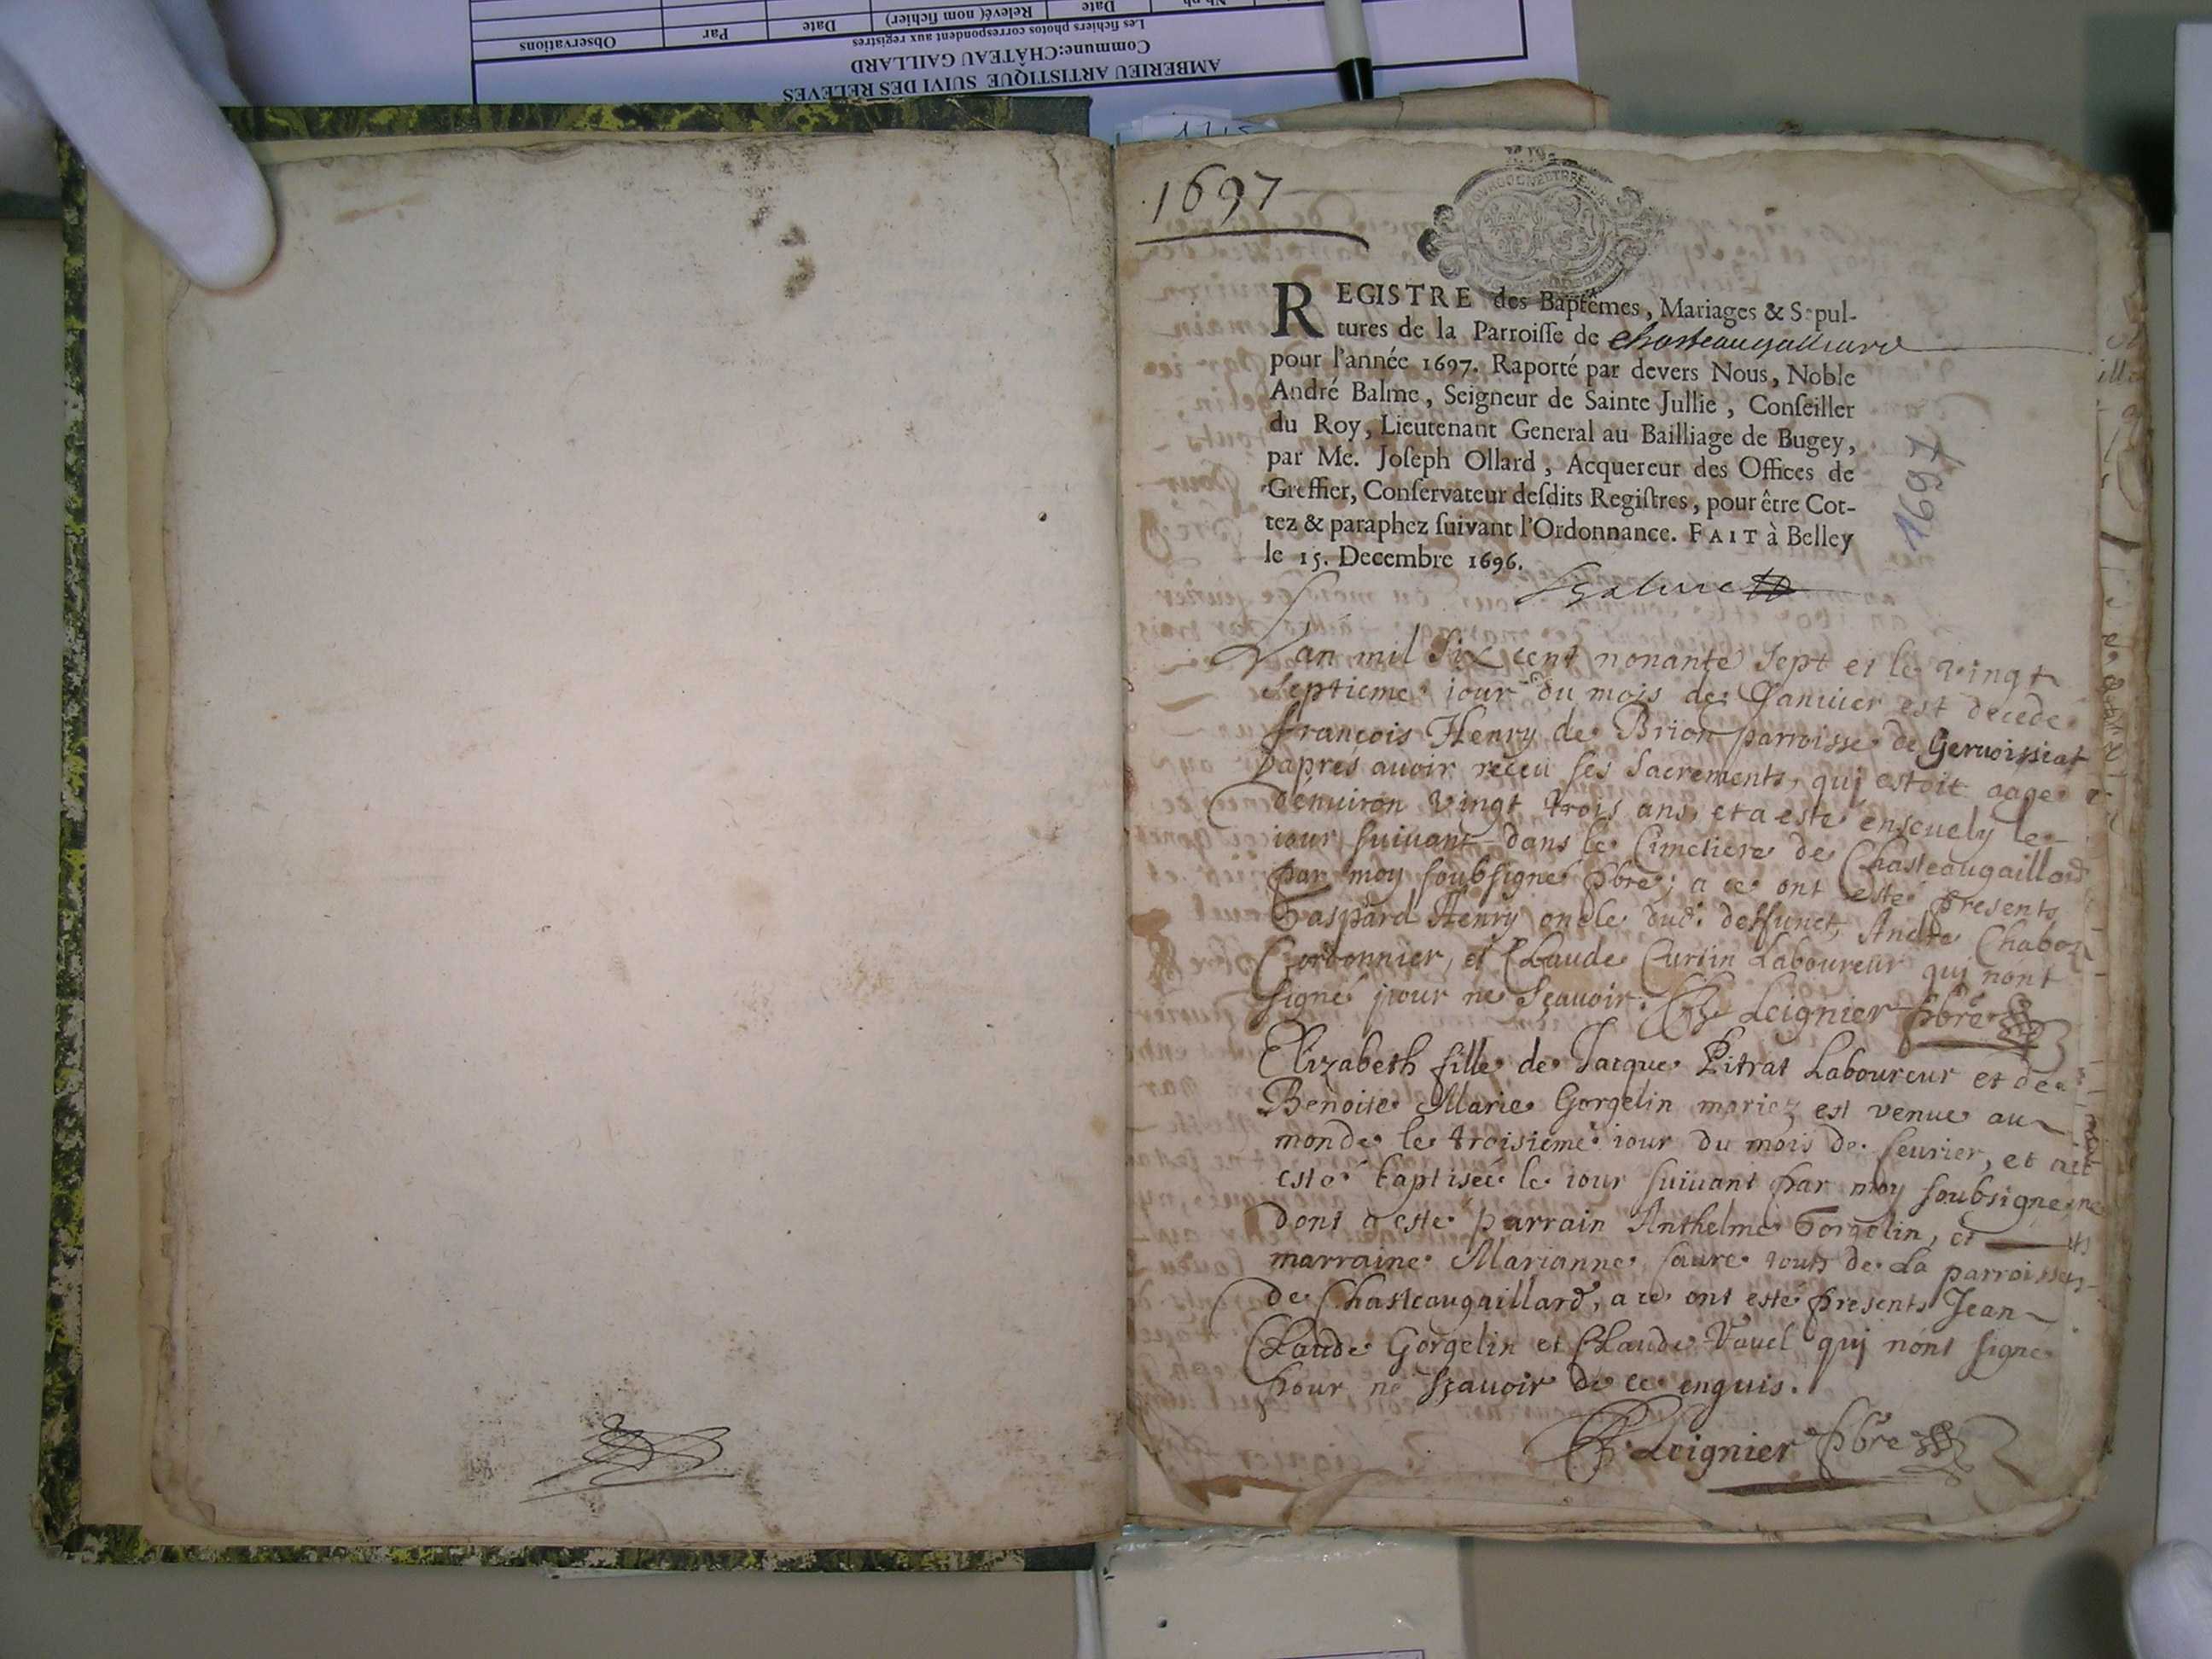 AMBERIEU ARTISTIQUE SUIVI DES RELEVES
Commune:CHÂTEAU GAILLARD
Les fichiers photos correspondent aux registres
Date Relevé( nom fichier) Date Par Observations
1697
REGISTRE des Baptêmes, Mariages & Sepul-
tures de la Parroisse de Chasteaugalliard
pour l'année 1697. Raporté par devers Nous, Noble
André Balme, Seigneur de Sainte Jullie, Conseiller
du Roy, Lieutenant General au Bailliage de Bugey,
par Me. Joseph Ollard, Acquereur des Offices de
Greffier, Conservateur desdits Registres, pour être Cot-
tez & paraphez suivant l'Ordonnance. FAIT à Belley
le 15. Decembre 1696.
Balme
1697
L'an mil six cent nonante sept et le vingt
septieme jour du mois de Januier est decede
françois Henry de Brion parroisse de Geruoissiat
apres auoir receu ses sacrements, qui estoit aage
denuiron vingt trois ans, et a este enseuely le
iour suiuant dans le Cimetiere de Chasteaugaillard
par moy soubsigne pbre; a ce ont este presents
Gaspard Henry oncle dud. deffunct, Andre Chabot
Cordonnier, et Claude Curtin Laboureur qui n'ont
signé pour ne sçauoir. Leignier pbre
Elizabeth fille de Jacque Pitrat Laboureur et de
Benoite Marie Gorgelin mariez est venue au
monde le troisieme iour du mois de feurier, et a
esté baptisée le iour suiuant par moy soubsigne
dont a este parrain Anthelme Gorgelin, et
marraine Marianne faure tous de La parroisse
de Chasteaugaillard, a ce ont esté presents Jean
Claude Gorgelin et Claude Vauel qui n'ont signe
pour ne sçauoir de ce enquis.
Leignier pbre